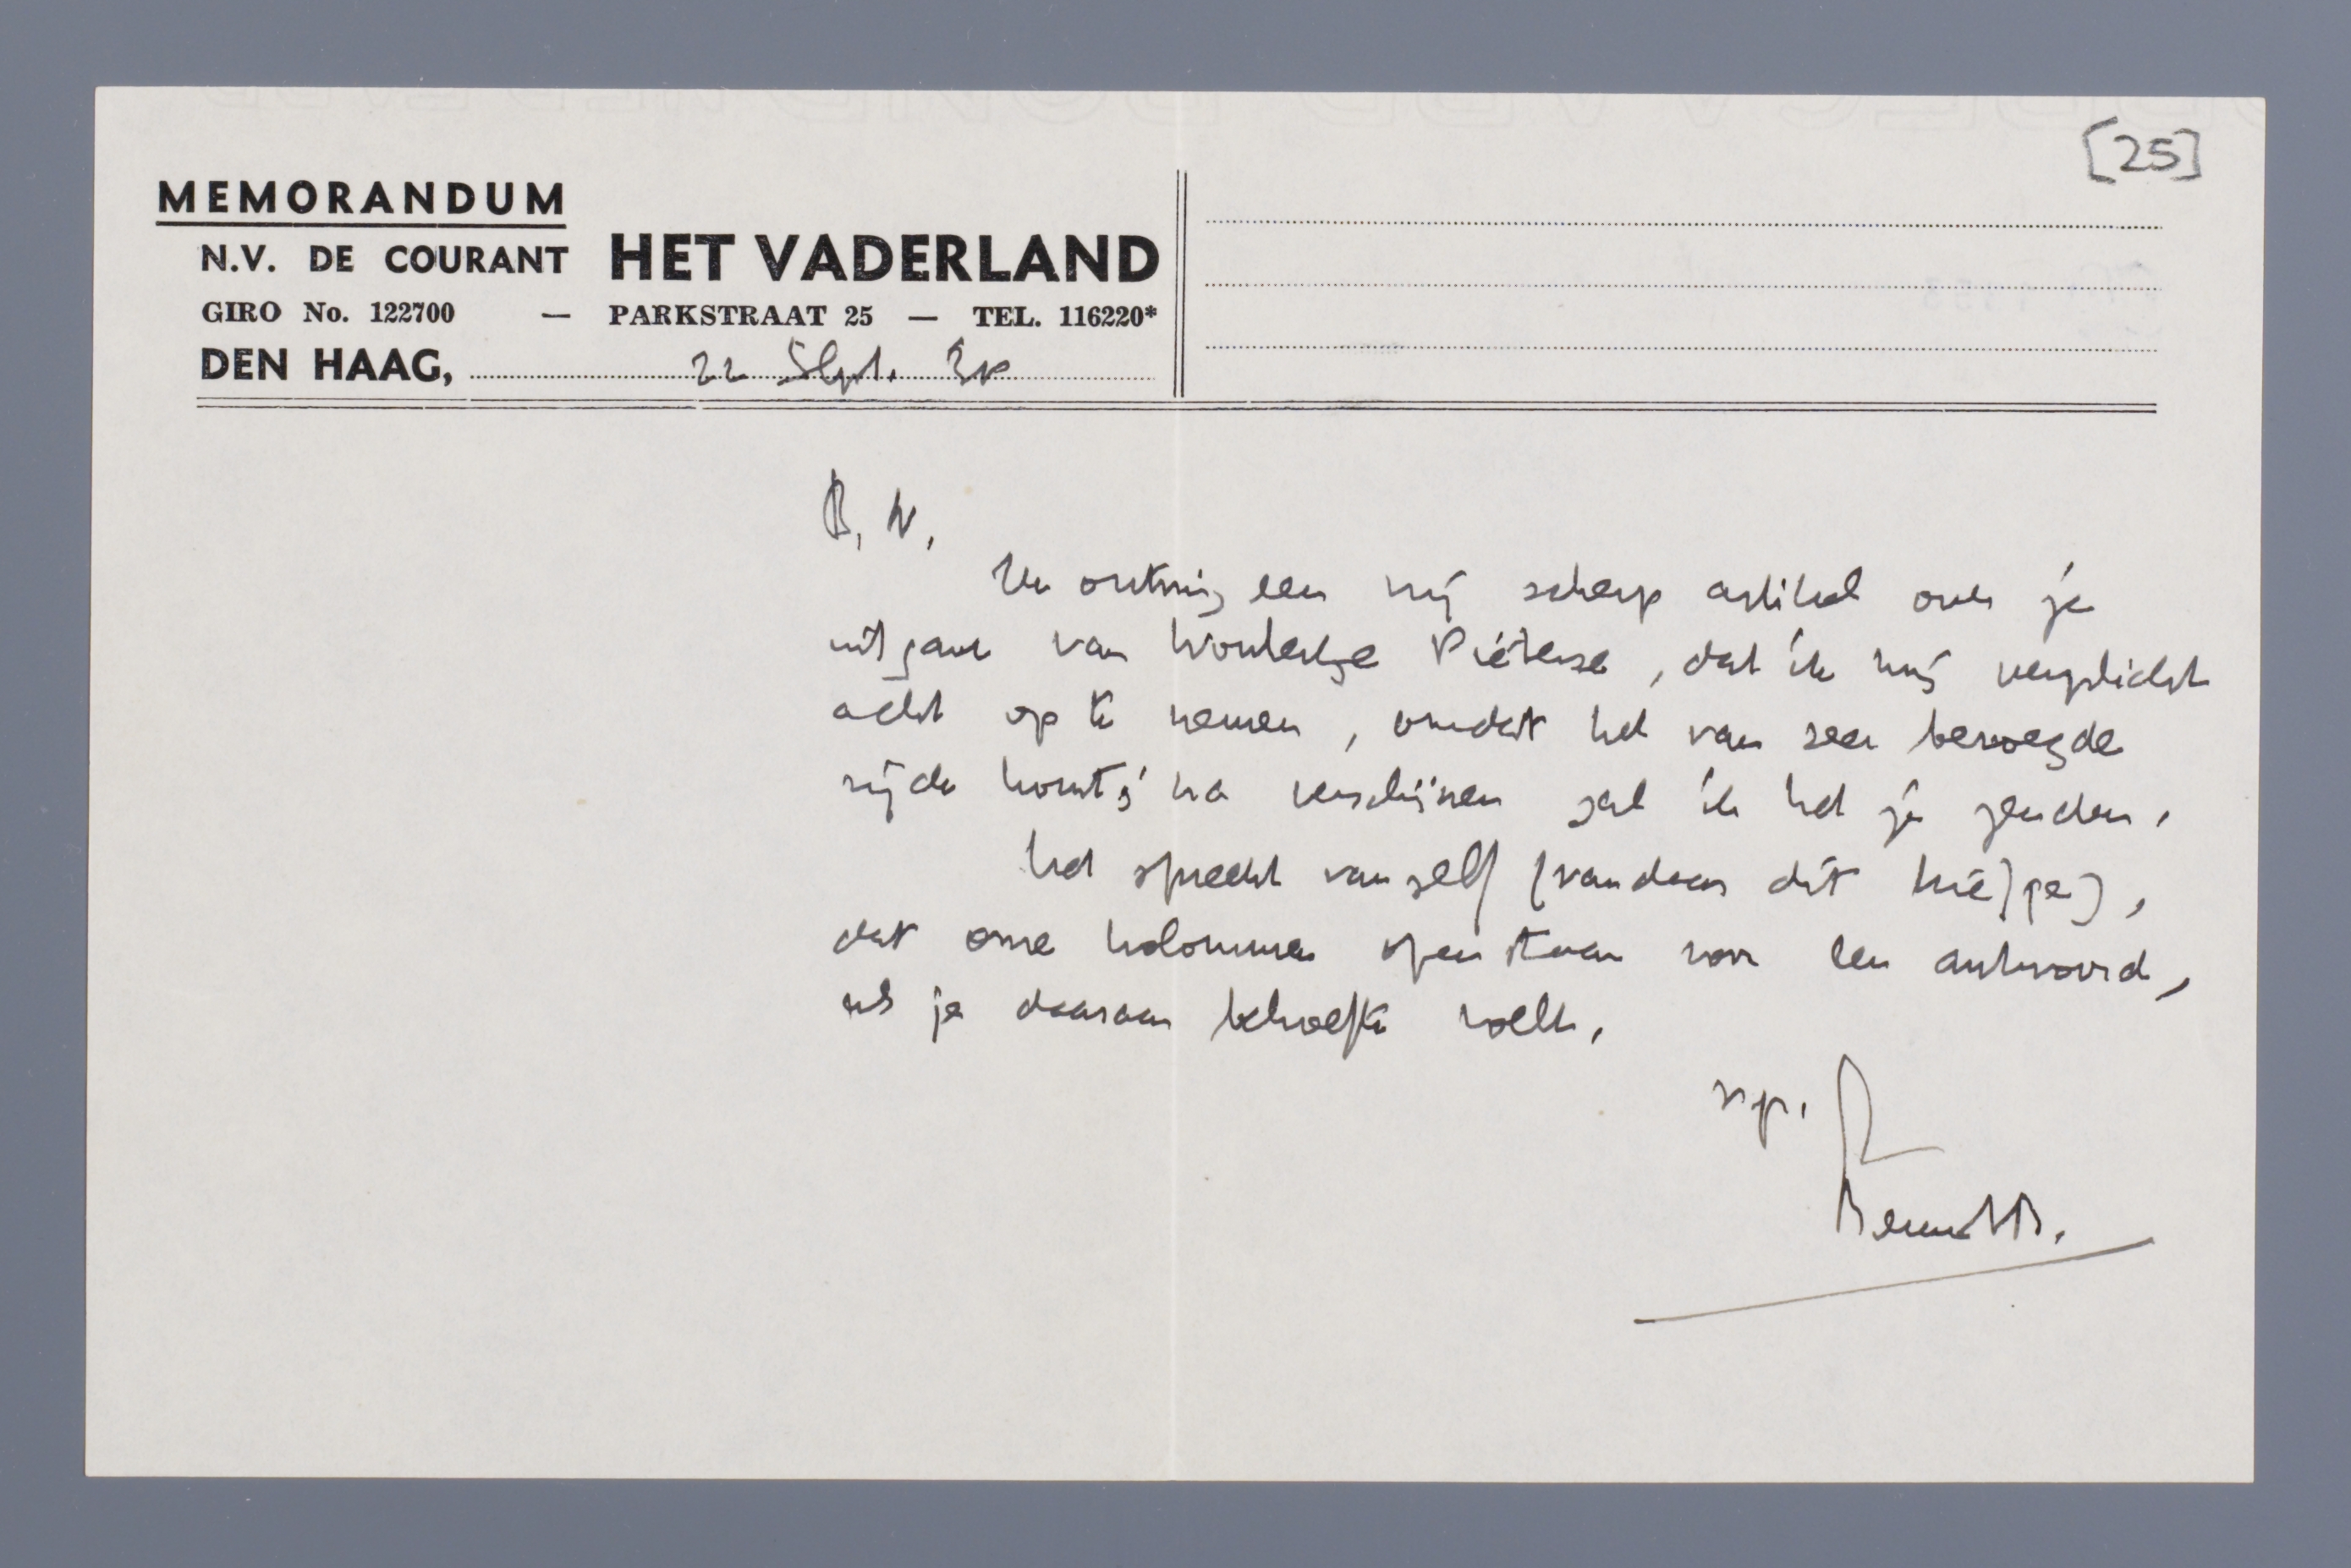 [25]
MEMORANDUM
N.V. DE COURANT HET VADERLAND
GIRO No. 122700 — PARKSTRAAT 25 — TEL. 116220*
DEN HAAG, 22 Sept. 38
B. W.,
We ontving een vrij scherp artikel over je
uitgave van Woutertje Pieterse, dat ik mij verplicht
acht op te nemen, omdat het van zeer bevoegde
zijde komt; na verschijnen zal ik het je zenden.
Het spreekt vanzelf (vandaar dit briefje),
dat onze kolommen openstaan voor een antwoord,
als je daaraan behoefte voelt.